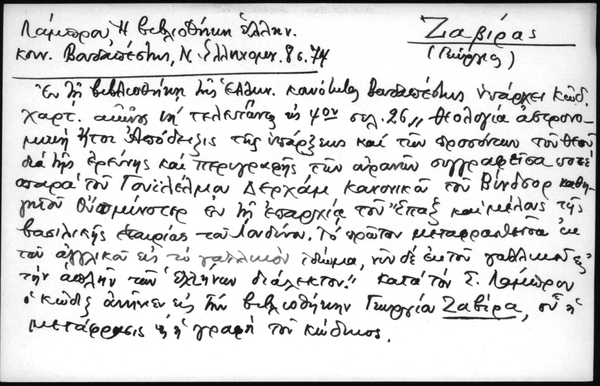 Λάμπρου Η βιβλιοθήκη Ἑλλην.
κοιν. Βουδαπέστης, Ν. Ἑλληνομν. 8 σ. 74
Ζαβίρας
(Γεώργιος)
Ἐν τῇ βιβλιοθήκῃ τῆς Ἑλλην. κοινότητος Βουδαπέστης ὑπάρχει κῶδ.
χαρτ. αἰῶνος ιη΄ τελευτῶντος εἰς 4ον σελ. 26 „Θεολογία ἀστρονο-
μικὴ ἤτοι ἀπόδειξις τῆς ὑπάρξεως καὶ τῶν προσόντων τοῦ θεοῦ
διὰ τῆς ἐρεύνης καὶ περιγραφῆς τῶν οὐρανῶν συγγραφεῖσα ποτὲ
παρὰ τοῦ Γουλιέλμου Δερχὰμ κανονικοῦ τοῦ Βίνδσορ καθη-
γητοῦ Οὐπμίνστερ ἐν τῇ ἐπαρχίᾳ τοῦ Ἔσσεξ καὶ μέλους τῆς
βασιλικῆς ἑταιρίας τοῦ Λονδίνου. Τὸ πρῶτον μεταφρασθεῖσα ἐκ
τοῦ ἀγγλικοῦ εἰς τὸ γαλλικὸν ἰδίωμα, νῦν δὲ ἐκ τοῦ γαλλικοῦ εἰς
τὴν ἁπλῆν τῶν Ἑλλήνων διάλεκτον." κατὰ τὸν Σ. Λάμπρου
ὁ κῶδιξ ἀνῆκεν εἰς τὴν βιβλιοθήκην Γεωργίου Ζαβίρα, οὗ ἡ
μετάφρασις ἢ ἡ γραφὴ τοῦ κώδικος.